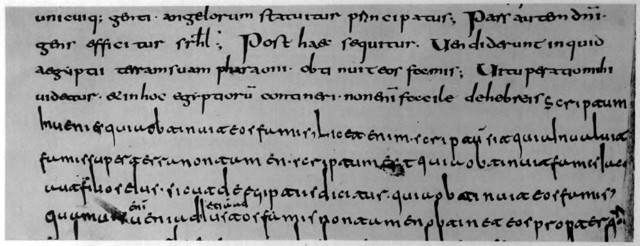 unicuiq; genti · angelorum statuitur principatus; Pars autem dni ·
gens efficitur srhl; Post haec sequitur · Uendiderunt inquid
aegyptii terram suam pharaoni · obtinuit eos famis; Uituperatio mihi
uidetur · & in hoc egiptiorū contineri · non enī facile de hebreis scriptum
Inuenies quia obtinuit eos famis; Licet enim · scriptū sit quia Inualuit
famis super terra non tamen · scriptum est quia obtinuit famis iacob
aut filios eius · sicut de egiptiis dicitur · quia obtinuit eos famis;
quamuis enī ueniat et iustos famis non tamen obtinet eos propter